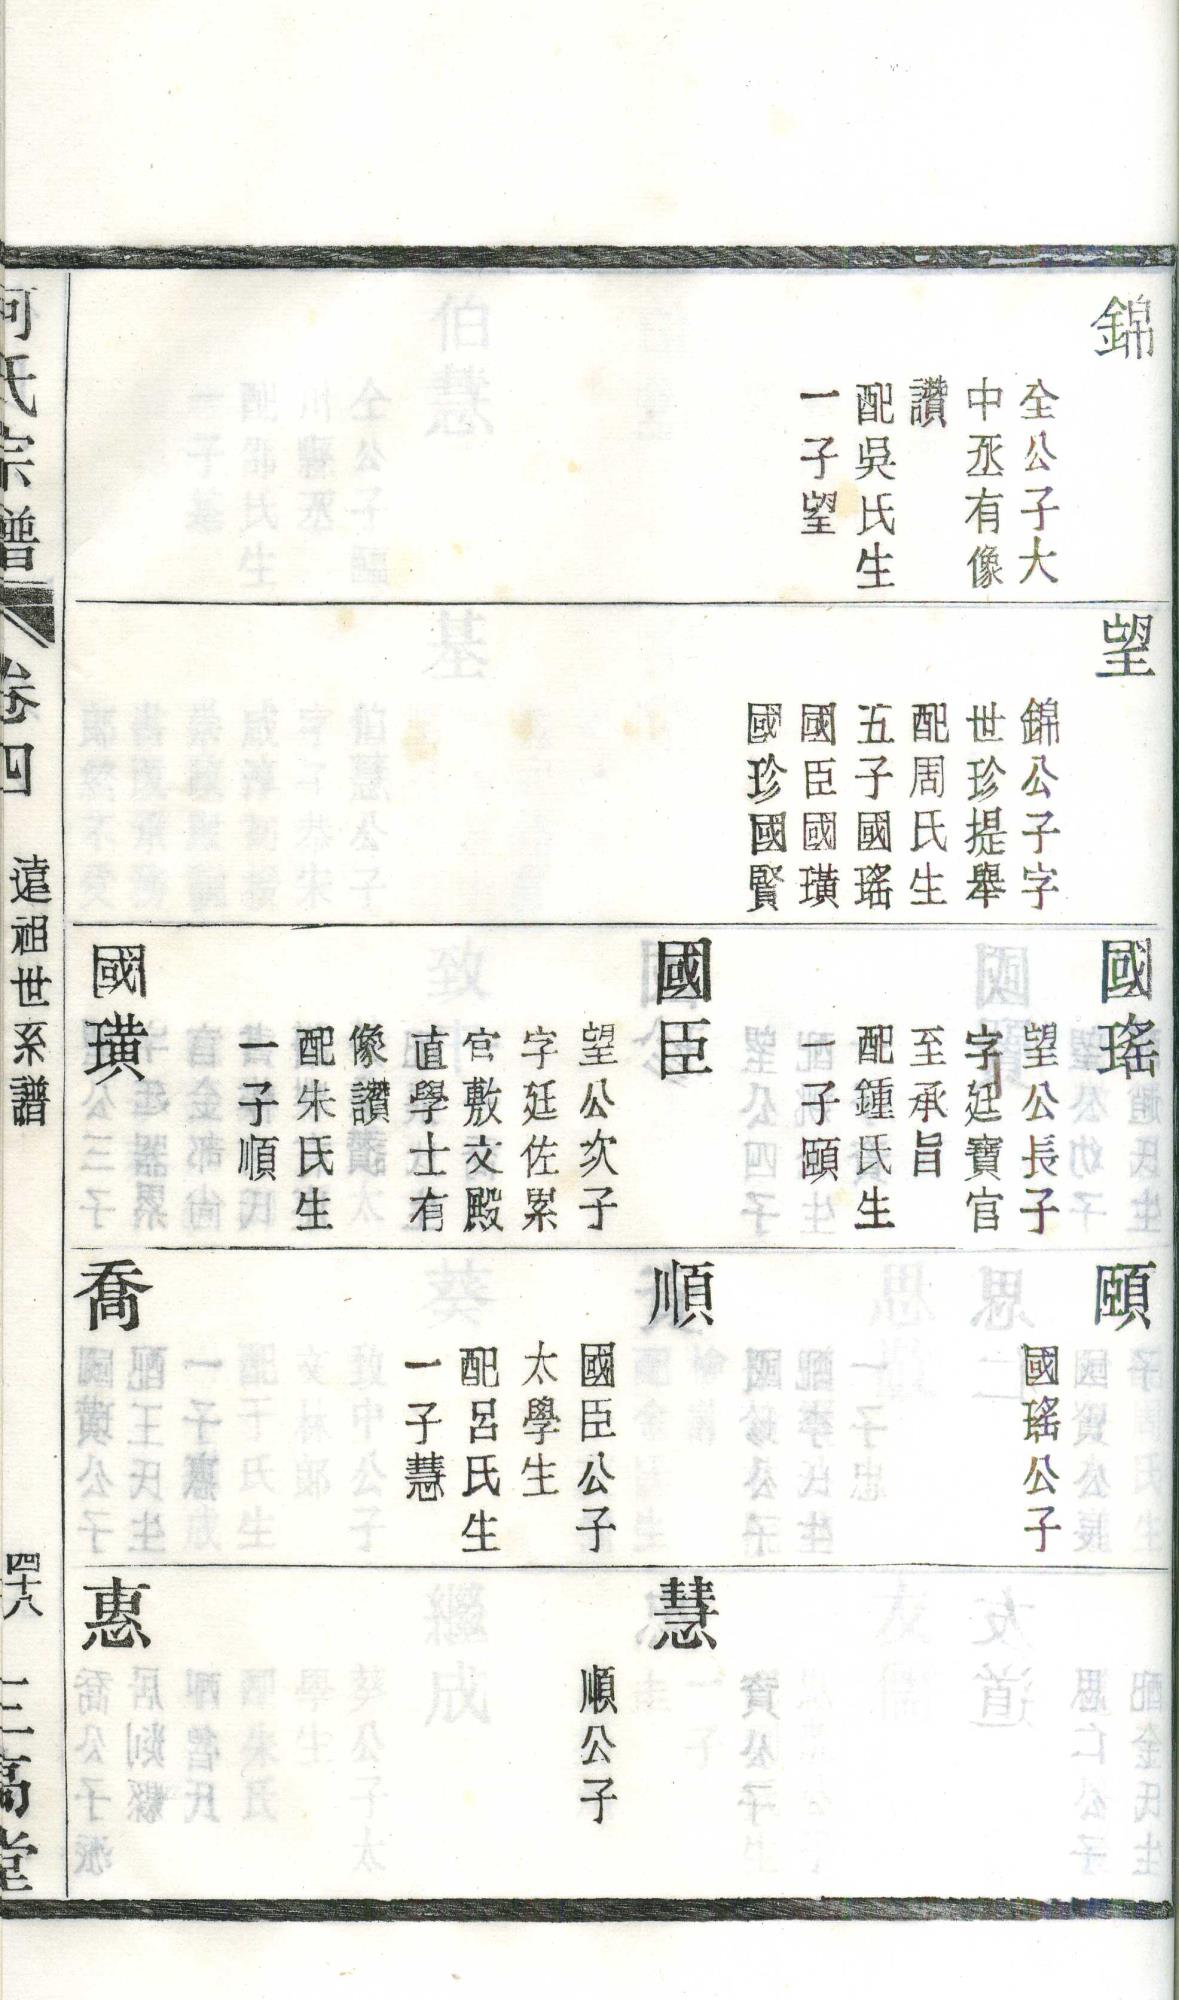 錦
全公子大
中丞有像
讚
配吳氏生
一子望
望
錦公子字
世珍提舉
配周氏生
五子國瑤
國臣國璜
國珍國賢
國瑤
望公長子
字廷寶官
至承旨
配鍾氏生
一子頤
國臣
望公次子
字廷佐累
官敷文殿
直學士有
像讚
配朱氏生
一子順
國璜
頤
國瑤公子
順
國臣公子
太學生
配呂氏生
一子慧
喬
慧
順公子
惠
何氏宗譜
卷四
遠祖世系譜
四十八
三高堂